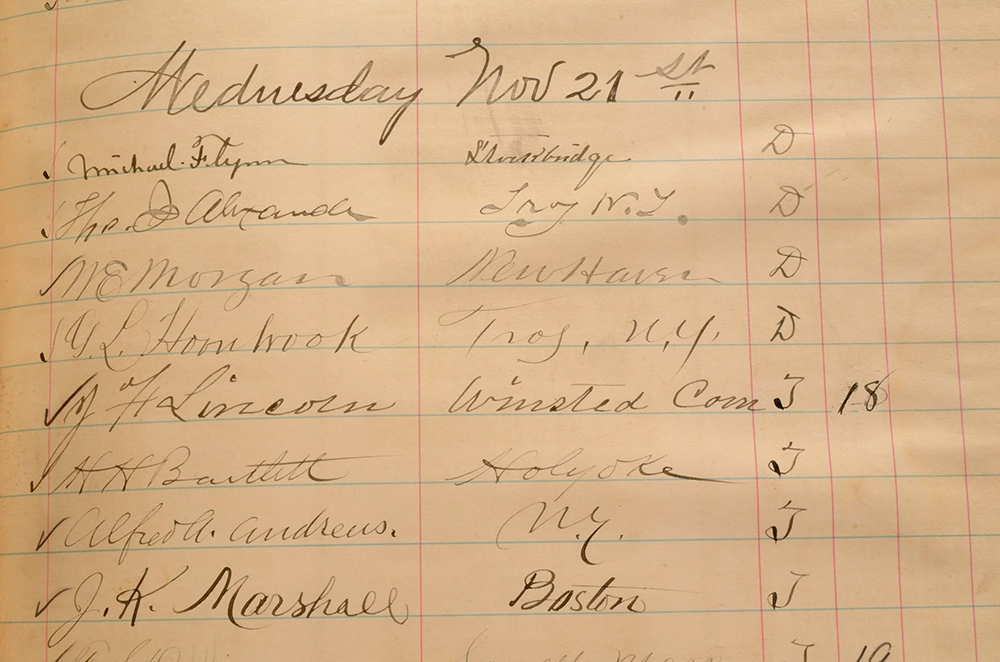 Wednesday Nov 21 st
Michael Flynn Stockbridge D
Tho. J Alexander Troy N.Y. D
W E Morgan New Haven D
G. L. Hornbrook Troy, N.Y. D
✓ F Lincoln Winsted Conn T 18
✓ H H Bartlett Holyoke T
✓ Alfred A. Andrews. N.Y. T
✓ J. K. Marshall Boston T
T 19